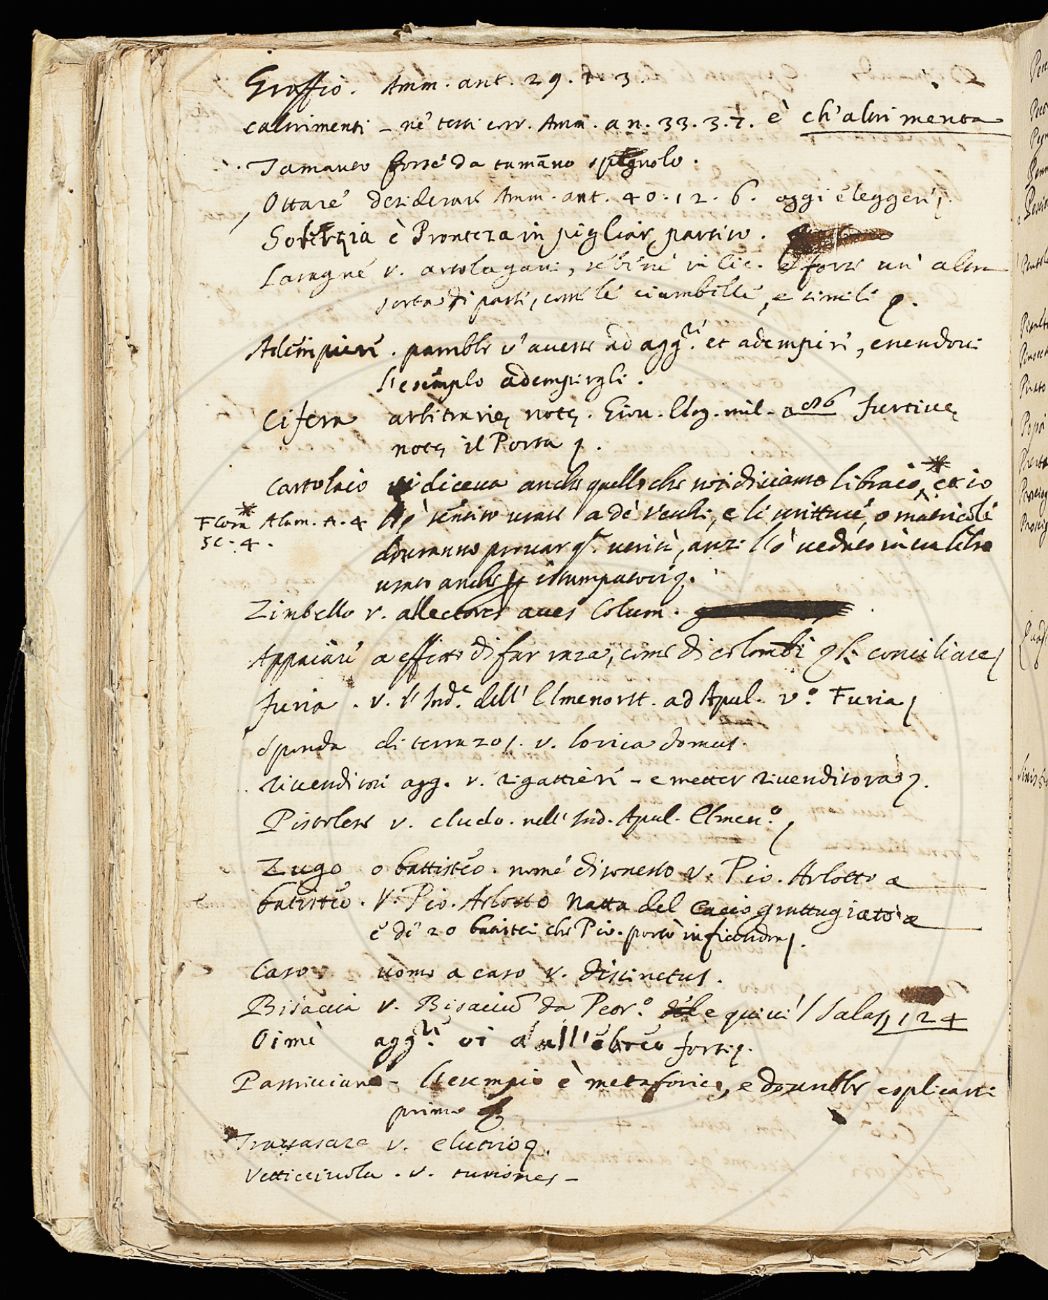 Graffio. Amm. ant. 29. 7. 3.
altrimenti - ne' testi corr. Amm. an. 33. 3. 7. è ch'altri menta
Tamanto forse da tamãno spagnolo.
Ottare desiderare Amm. ant. 40. 12. 6. oggi è leggeri
Solerzia è Prontezza in pigliar partito.
Lasagne v. artolagani, forse un' altra
sorta di pasti, come le ciambelle, e simili
Adempiere. parrebbe s'avesse ad agg.re et adempiere, essendovi
l'esemplo adempiergli.
Cifera arbitrarie note. furtive
note il Porta
Cartolaio si diceva anche quello che noi diciamo libraio, et io
Flora Alam. A. 4 l'ho sentito usare a de' vecchi, e le scritture, o matricole
SC. 4. dovranno provar q.ta verità, anzi l'ho veduto in un libro
usato anche p stampatori.
Zimbello v. allectores aves Colum.
Appaiare a effetto di far razza, come di colombi conciliare
furia. v. l'Ind.e dell' Elmenorst. ad Apul. v.o Furia
sponda di terrazo. v. lorica domus.
Rivenditori agg. v. rigattieri - e metter rivenditora
Pistolese v. cludo. nell' Ind. Apul. Elmen.o
Zugo o battisteo. nome disonesto v. Pio. Arlotto a
batisteo. V. Pio. Arlotto Natta del Cacio grattugiato a
e di 20 batistei che Pio. portò in
Caso uomo a caso v. discinctus.
Bisaccia v. Bisaccio da Pecor.o e quivi 124
Oimè agg.ri oi all'ebreo forse.
Pasticciano - L'esempio è metaforico, e dovrebbe esplicarsi
prima
Travasare v. elutrio
Vetticciuola. v. turiones -